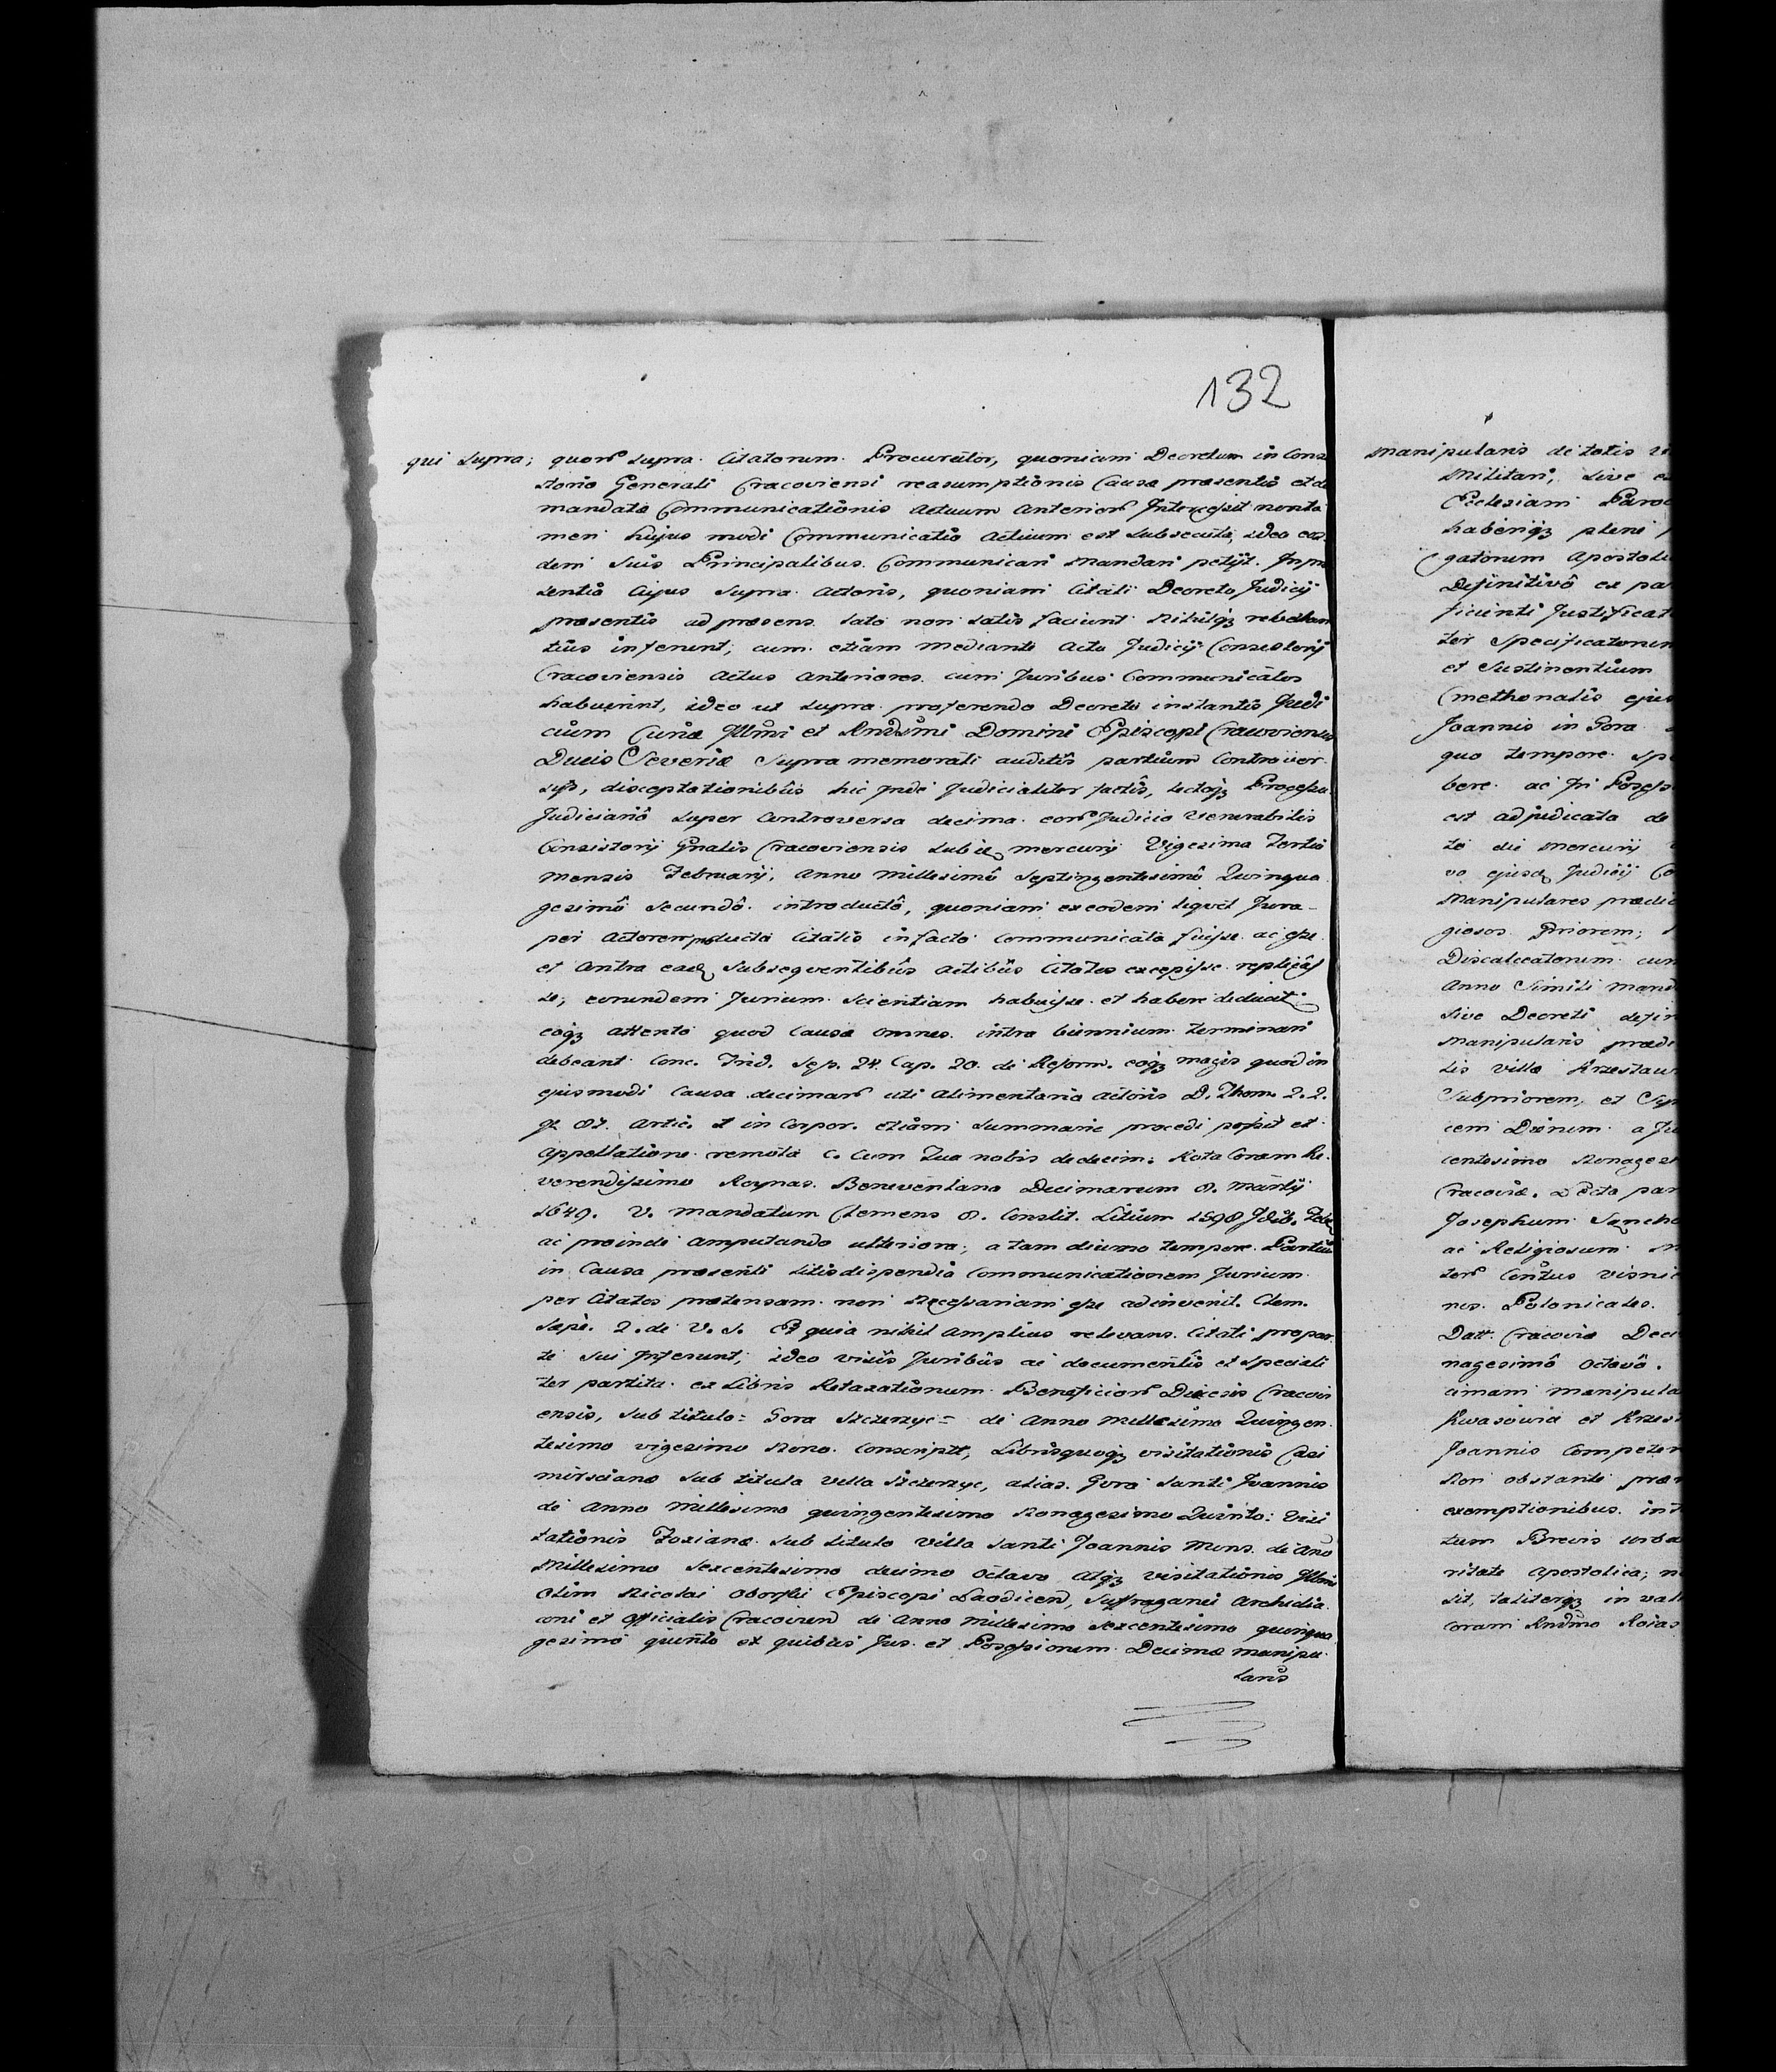 132
qui supra; quor supra Citatorum Procurator, quoniam Decretum in Cons
storio Generali Cracoviensi reasumptionis Causæ præsentis et de
mandato Communicationis actuum anterior Intercessit non ta
men hujus modi Communicatio actuum est subsecuta, ideo eos
dem suis Principalibus Communicari mandari petijt. In præ
sentia cujus supra actoris, quoniam Citati Decreto Judicij
præsentis ad præsens lato non satis faciunt nihilq
tius inferunt; cum etiam mediante acto Judicij Consistorij
Cracoviensis actus anteriores cum Juribus Communicatos
habuerint, ideo ut supra proferendo Decreto instantis Judi
cium Curiæ Illmi et Rndsmi Domini Episcopi Cracoviensis
Ducis Severiæ supra memorati auditis partium Controver
sijs, disceptationibus hic inde Judicialiter factis, lectoq Processu
Judiciario super Controversa decima cor Judicio Venerabilis
Consistorij Gnalis Cracoviensis sub die mercurij Vigesima Tertia
mensis Februarij, anno millesimô Septingentesimô Quinqua
gesimô secundô introductô, quoniam ex eodem liqvet Jura
per actorem producta Citatis in facto communicata fuisse ac esse
et contra eadem subseqventibus actibus Citatos excepisse replicas
se, eorundem Jurium scientiam habuisse et habere
eoq attento quod Causæ omnes intra biennium terminari
debeant Conc. Trid. Sess. 24. Cap. 20. de Reform. eoq magis quod in
ejusmodi Causa decimar uti alimentaria actoris D. Thom. 2. 2.
q. 87. artic. 1 in Corpor. etiam summarie procedi possit et
appellatione remota c. Cum Tua nobis de decim. Rota Coram Re
verendissimo Roynas Beneventana Decimarum 8. Martij
1649. V. mandatum Clemens 8. Constit. Litium 1598
ac proinde amputando ulteriora, a tam diurno tempore Partium
in Causa præsenti litis dispendia communicationem Jurium
per Citatos prætensam non Necessariam esse adinvenit. Clem.
sæpè. 2. de V. S. Et quia nihil amplius relevans Citati pro par
te sui Inferunt, ideo visis Juribus ac documentis et speciali
ter partita ex Libris Retaxationum Beneficior Diecesis Cracovi
ensis, sub titulo: Gora Szczerzyc = de Anno millesimo Quingen
tesimo vigesimo nono Conscript, Librisquoq visitationis Casi
mirsciana sub titulo Villa Szczerzyc, alias Gora Santi Joannis
de anno millesimo quingentesimo nonagesimo Quinto: Visi
tationis Foxiana sub titulo Villa Santi Joannis mons. de Año
Millesimo sexcentesimo decimo octavo atq visitationis Illmi
olim Nicolai Oborski Episcopi Laodicen, Suffraganei Archidia
coni et officialis Cracovien de Anno Millesimo sexcentesimo quinqua
gesimo quinto ex quibus Jus et Possessionem Decimæ manipu
laris
manipularis de totis
Militari, sive
Ecclesiam Paro
haberiq pleni
gatorum Apostoli
Definitivô ex pa
ficienti Justificat
ter Specificatorum
et Sustinentium
Cmethonalis ejus
Joannis in Gora
quo tempore
bere ac In Possess
est adjudicata de
te die mercurij
vo ejusd Judicij Co
Manipulares prædic
giosos Priorem;
Discalceatorum cum
Anno Simili
sive Decreti defin
manipularis prædi
lis villæ Krzesław
Subpriorem, et
cem a Ju
centesimo Nonages
Cracoviæ. par
Josephum Sancho
ac Religiosum
nos. Polonicales.
Datt. Cracoviæ Dec
nagesimô Octavô.
cimam manipula
Kwasowia et Krzes
Joannis Compete
Non obstante præ
exemptionibus in
tum Brevis
ritate Apostolica;
sit, taliterq in vali
Coram Rndmo Roias